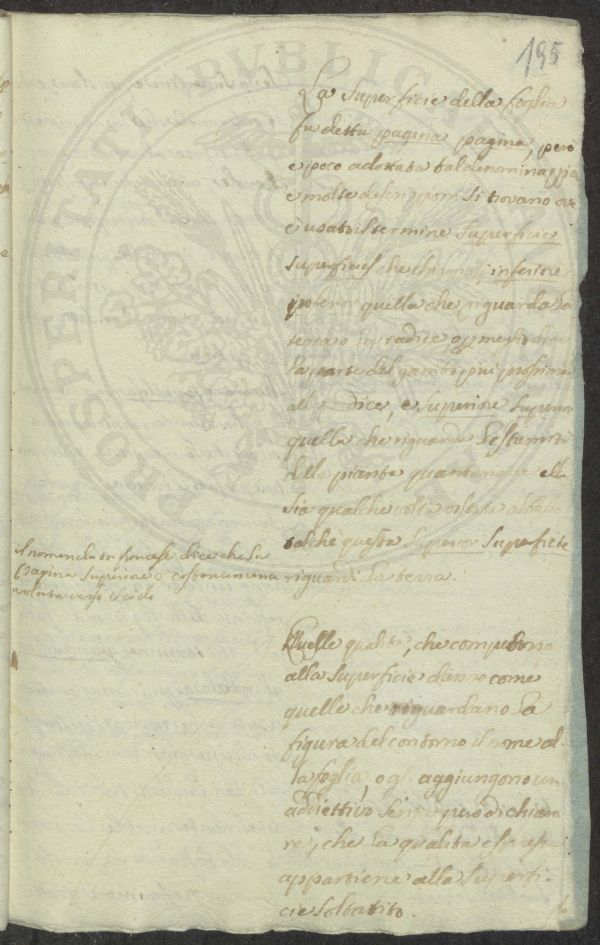 195
La Superficie della foglia
fu detta pagina pagina, però
è poco adottata tal dinominazzio
e molte descrizzioni si trovano ove
è usato il termine Superficie
Superficies che chiamo inferiore
inferior quella che riguarda la
terra o la radice, o
la parte del gambo più prossima
alla radice, e superiore Superior
quella che riguarda l'estremità
della pianta quantunque ella
sia qualche volta
talchè questa Superior Superficie
riguardi la terra.
il nomenclator francese dice che la
Pagina Superiore è costantemente
voltata verso il cielo
Quelle qualità, che competono
alla Superficie danno come
quelle che riguardano la
figura del contorno il nome al
la foglia, o gl. aggiungono un
addiettivo però dichiara
re, che la qualità espressa
appartiene alla Superfi
cie soltanto.
PUBLICAE
PROSPERITATI